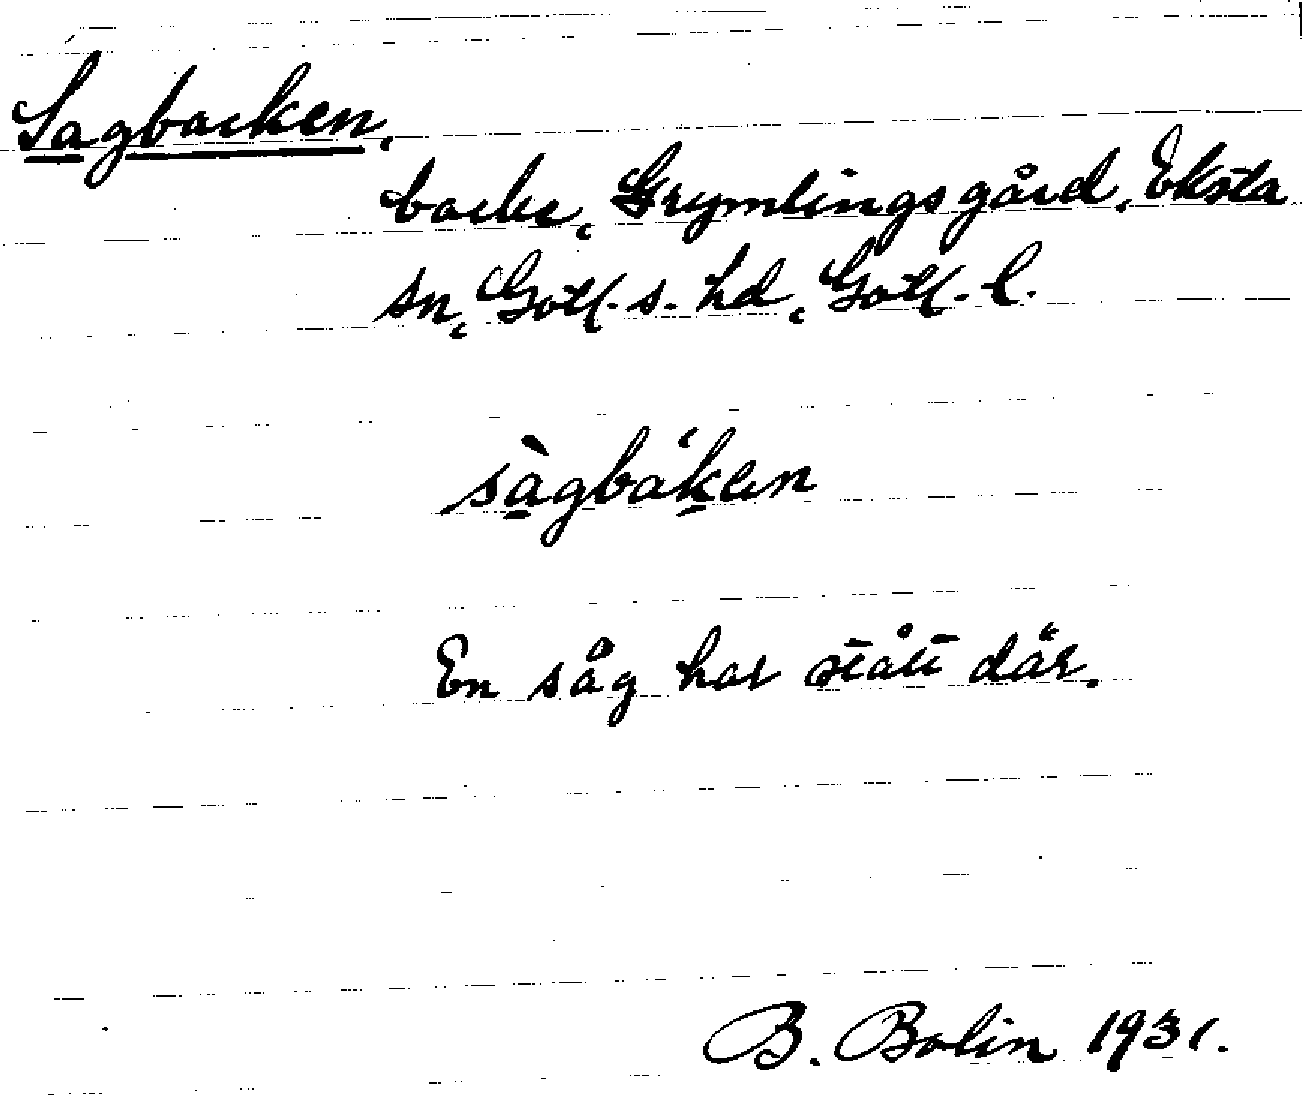 Sagbacken,
backe, Grymlings gård, Eksta
sn, Gotl. s. hd, Gotl. l.
sàgbákεn
En såg har stått där.
B. Bolin 1931.